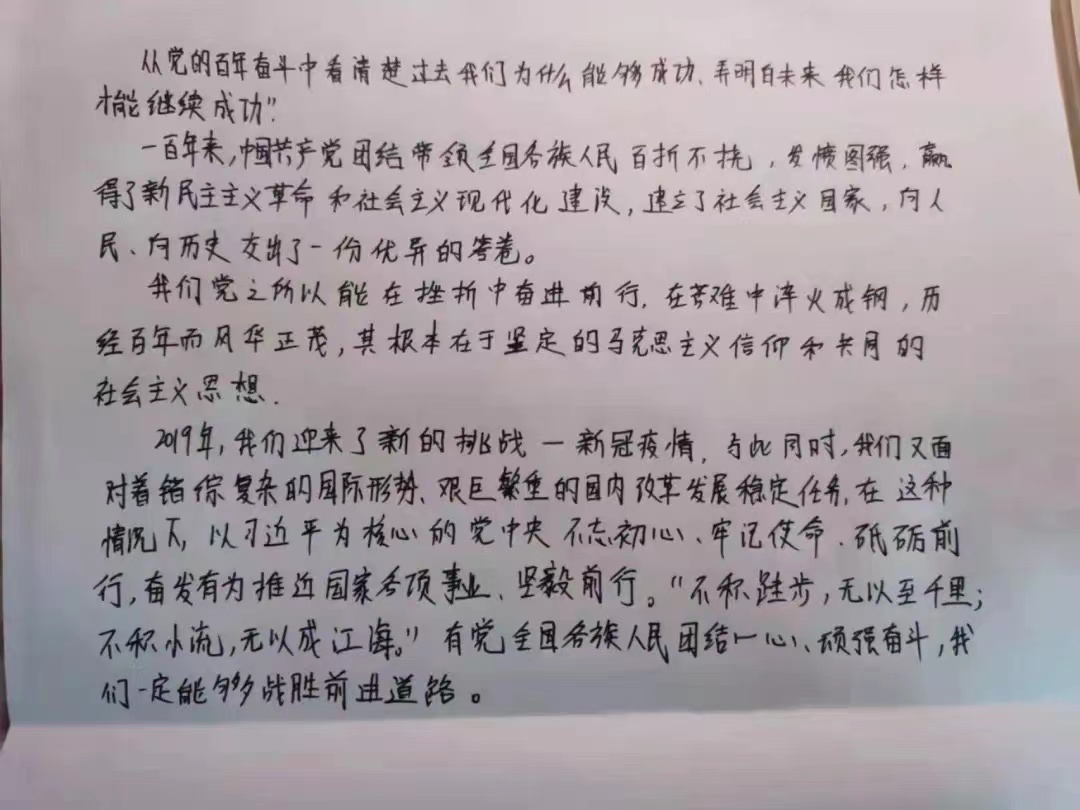 从党的百年奋斗中看清楚过去我们为什么能够成功、弄明白未来我们怎样
才能继续成功”
一百年来,中国共产党团结带领全国各族人民百折不挠,发愤图强,赢
得了新民主主义革命和社会主义现代化建设,建立了社会主义国家,向人
民、向历史交出了一份优异的答卷。
我们党之所以能在挫折中奋进前行,在苦难中淬火成钢,历
经百年而风华正茂,其根本在于坚定的马克思主义信仰和共同的
社会主义思想.
2019年,我们迎来了新的挑战—新冠疫情,与此同时,我们又面
对着错综复杂的国际形势、艰巨繁重的国内改革发展稳定任务,在这种
情况下,以习近平为核心的党中央不忘初心、牢记使命、砥砺前
行,奋发有为推进国家各项事业、坚毅前行。“不积跬步,无以至千里;
不积小流,无以成江海。”有党全国各族人民团结一心、顽强奋斗,我
们一定能够战胜前进道路。